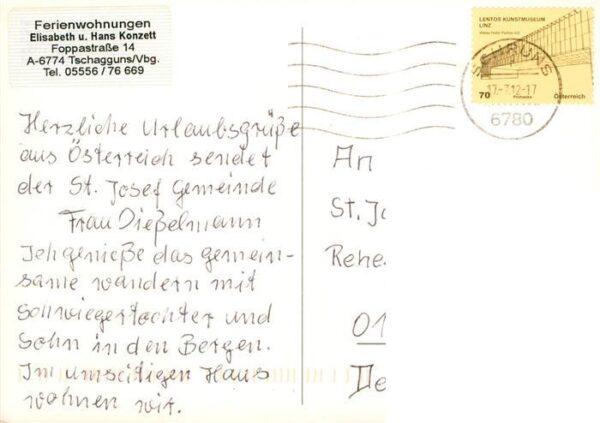 Ferienwohnungen
Elisabeth u. Hans Konzett
Foppastraße 14
A-6774 Tschagguns/Vbg.
Tel. 05556 / 76 669
LENTOS KUNSTMUSEUM
LINZ
70
Österreich
SCHRUNS
17.-7.12-17
6780
Herzliche Urlaubsgrüße
aus Österreich sendet
der St. Josef Gemeinde
Frau Dießelmann
Ich genieße das gemein-
same wandern mit
schwiegertochter und
Sohn in den Bergen.
Im umseitigen Haus
wohnen wir.
An
St. Jo
Rehe
01
De